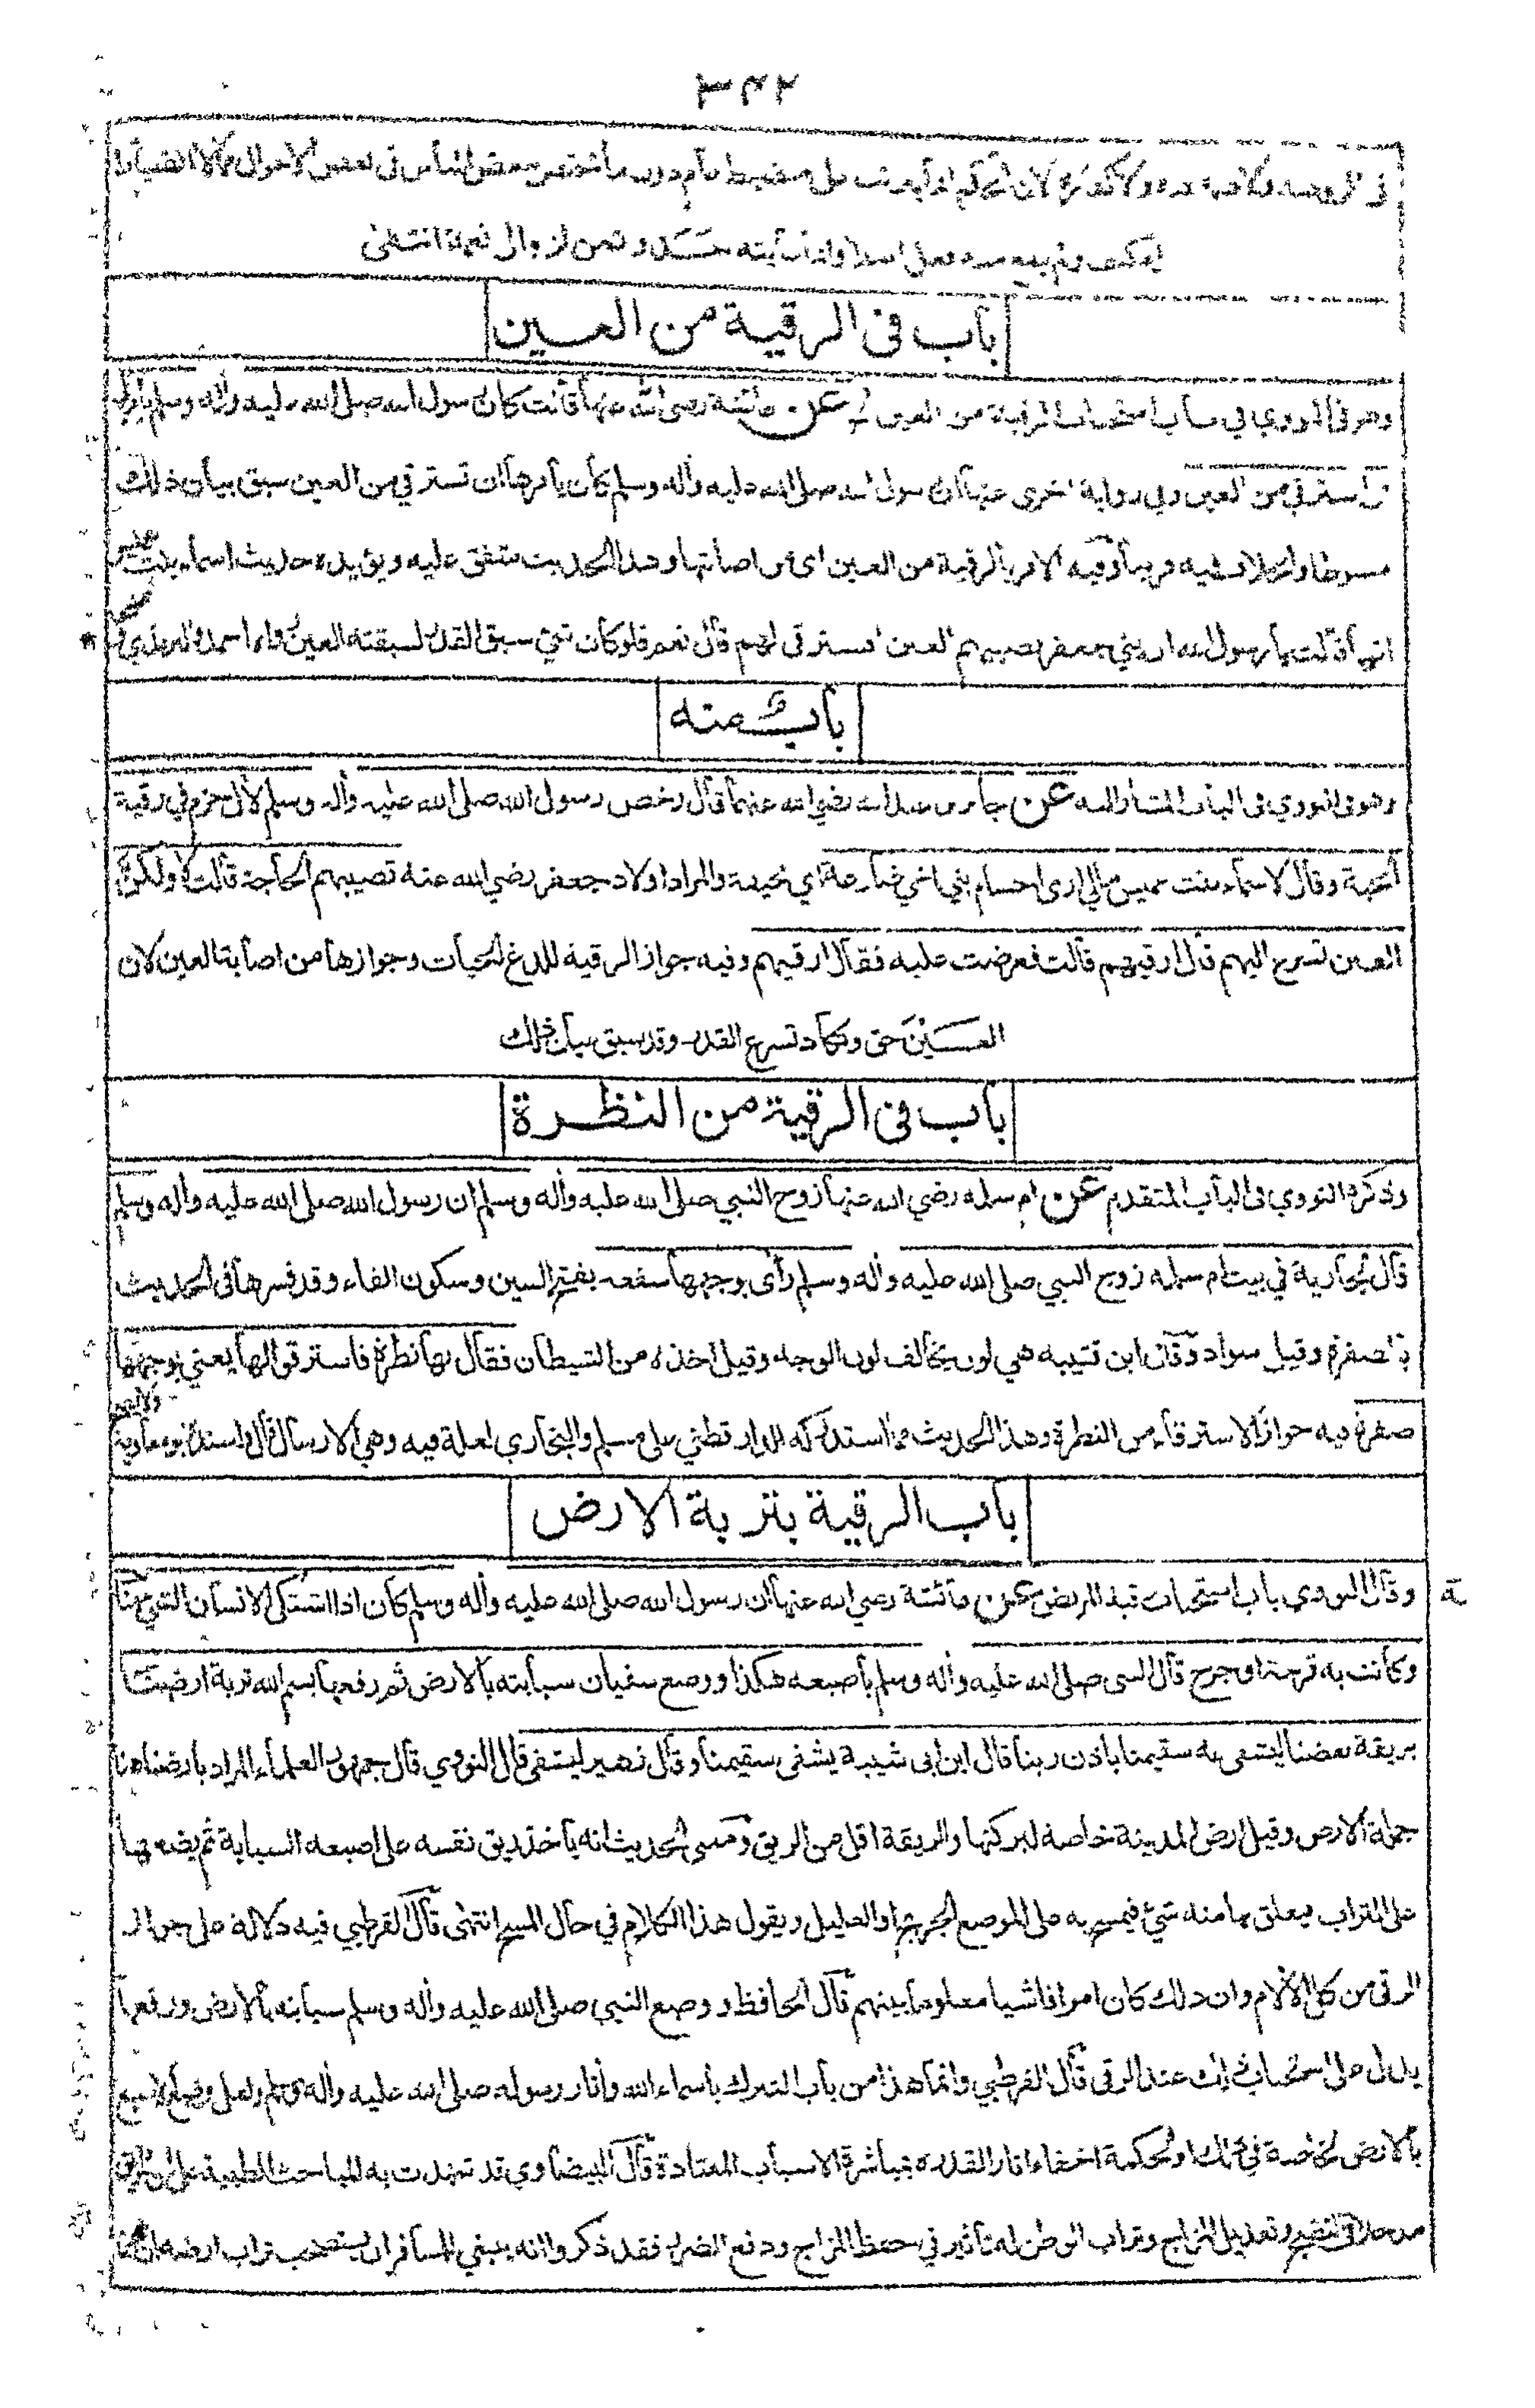 ٣٤٢
باب في الرقية من العين
وهو في النووي في باب استحباب الرقية من العين عن عائشة رضي الله عنها قالت كان رسول الله صلى الله عليه وأله وسلم
استرقي من العين وفي رواية اخرى عنها ان رسول الله صلى الله عليه وأله وسلم كان يأمرها ان تسترقي من العين سبق بيان ذلك
مبسوطا والخلاف فيه قريبا وفيه الامر بالرقية من العين اي من اصابتها وهذا الحديث متفق عليه ويؤيده حديث اسماء بنت عميس
انها قالت يا رسول الله ان بني جعفر تصيبهم العين افنسترقي لهم قال نعم فلو كان شيء سبق القدر لسبقته العين رواه احمد والترمذي
باب منه
وهو في النووي في الباب المشار اليه عن جابر بن عبد الله رضي الله عنهما قال رخص رسول الله صلى الله عليه وأله وسلم لأل حزم في رقية
الحية وقال لاسماء بنت عميس مالي ارى اجسام بني اخي ضارعة اي نحيفة والمراد اولاد جعفر رضي الله عنه تصيبهم الحاجة قالت لا ولكن
العين تسرع اليهم قال ارقيهم قالت فعرضت عليه فقال ارقيهم وفيه جواز الرقية للدغ الحيات وجوازها من اصابة العين لان
العين حق وتكاد تسرع القدر وقد سبق بيان ذلك
باب في الرقية من النظرة
وذكره النووي في الباب المتقدم عن ام سلمه رضي الله عنها زوج النبي صلى الله عليه وأله وسلم ان رسول الله صلى الله عليه وأله وسلم
قال لجارية في بيت ام سلمه زوج النبي صلى الله عليه وأله وسلم رأى بوجهها سفعه بفتح السين وسكون الفاء وقد فسرها في الحديث
بالصفرة وقيل سواد وقال ابن قتيبه هي لون يخالف لون الوجه وقيل اخذة من الشيطان فقال بها نظرة فاسترقوا لها يعني بوجهها
صفرة فيه جواز الاسترقاء من النظرة وهذا الحديث مما استدركه الدارقطني على مسلم والبخاري لعلة فيه وهي الارسال قال واسنده ابو معاوية
باب الرقية بتربة الارض
وقال النووي باب استحباب رقية المريض عن عائشة رضي الله عنها ان رسول الله صلى الله عليه وأله وسلم كان اذا اشتكى الانسان الشيء منه
وكانت به قرحة او جرح قال النبي صلى الله عليه وأله وسلم بأصبعه هكذا ووضع سفيان سبابته بالارض ثم رفعها بسم الله تربة ارضنا
بريقة بعضنا ليشفى به سقيمنا باذن ربنا قال ابن ابي شيبة يشفى سقيمنا وقال زهير ليشفى قال النووي قال جمهور العلماء المراد بارضنا هنا
جملة الارض وقيل ارض المدينة خاصة لبركتها والريقة اقل من الريق ومعنى الحديث انه يأخذ ريق نفسه على اصبعه السبابة ثم يضعها
على التراب فيعلق بها منه شيء فيمسح به على الموضع الجريح او العليل ويقول هذا الكلام في حال المسح انتهى قال القرطبي فيه دلالة على جواز
الرقى من كل الألام وان ذلك كان امرا فاشيا معلوما بينهم قال الحافظ ووضع النبي صلى الله عليه وأله وسلم سبابته بالارض ورفعها
يدل على استحباب ذلك عند الرقى قال القرطبي وانما هذا من باب التبرك باسماء الله وأثار رسوله صلى الله عليه وأله وسلم ولعل وضع الاصبع
بالارض لخاصة في ذلك او لحكمة اخفاء اثار القدره بمباشرة الاسباب المعتادة قال البيضاوي قد شهدت به المباحث الطبية على ان للريق
مدخلا في النضج وتعديل المزاج وتراب الوطن له تأثير في حفظ المزاج ودفع الضرر فقد ذكروا انه ينبغي للمسافر ان يستصحب تراب ارضه